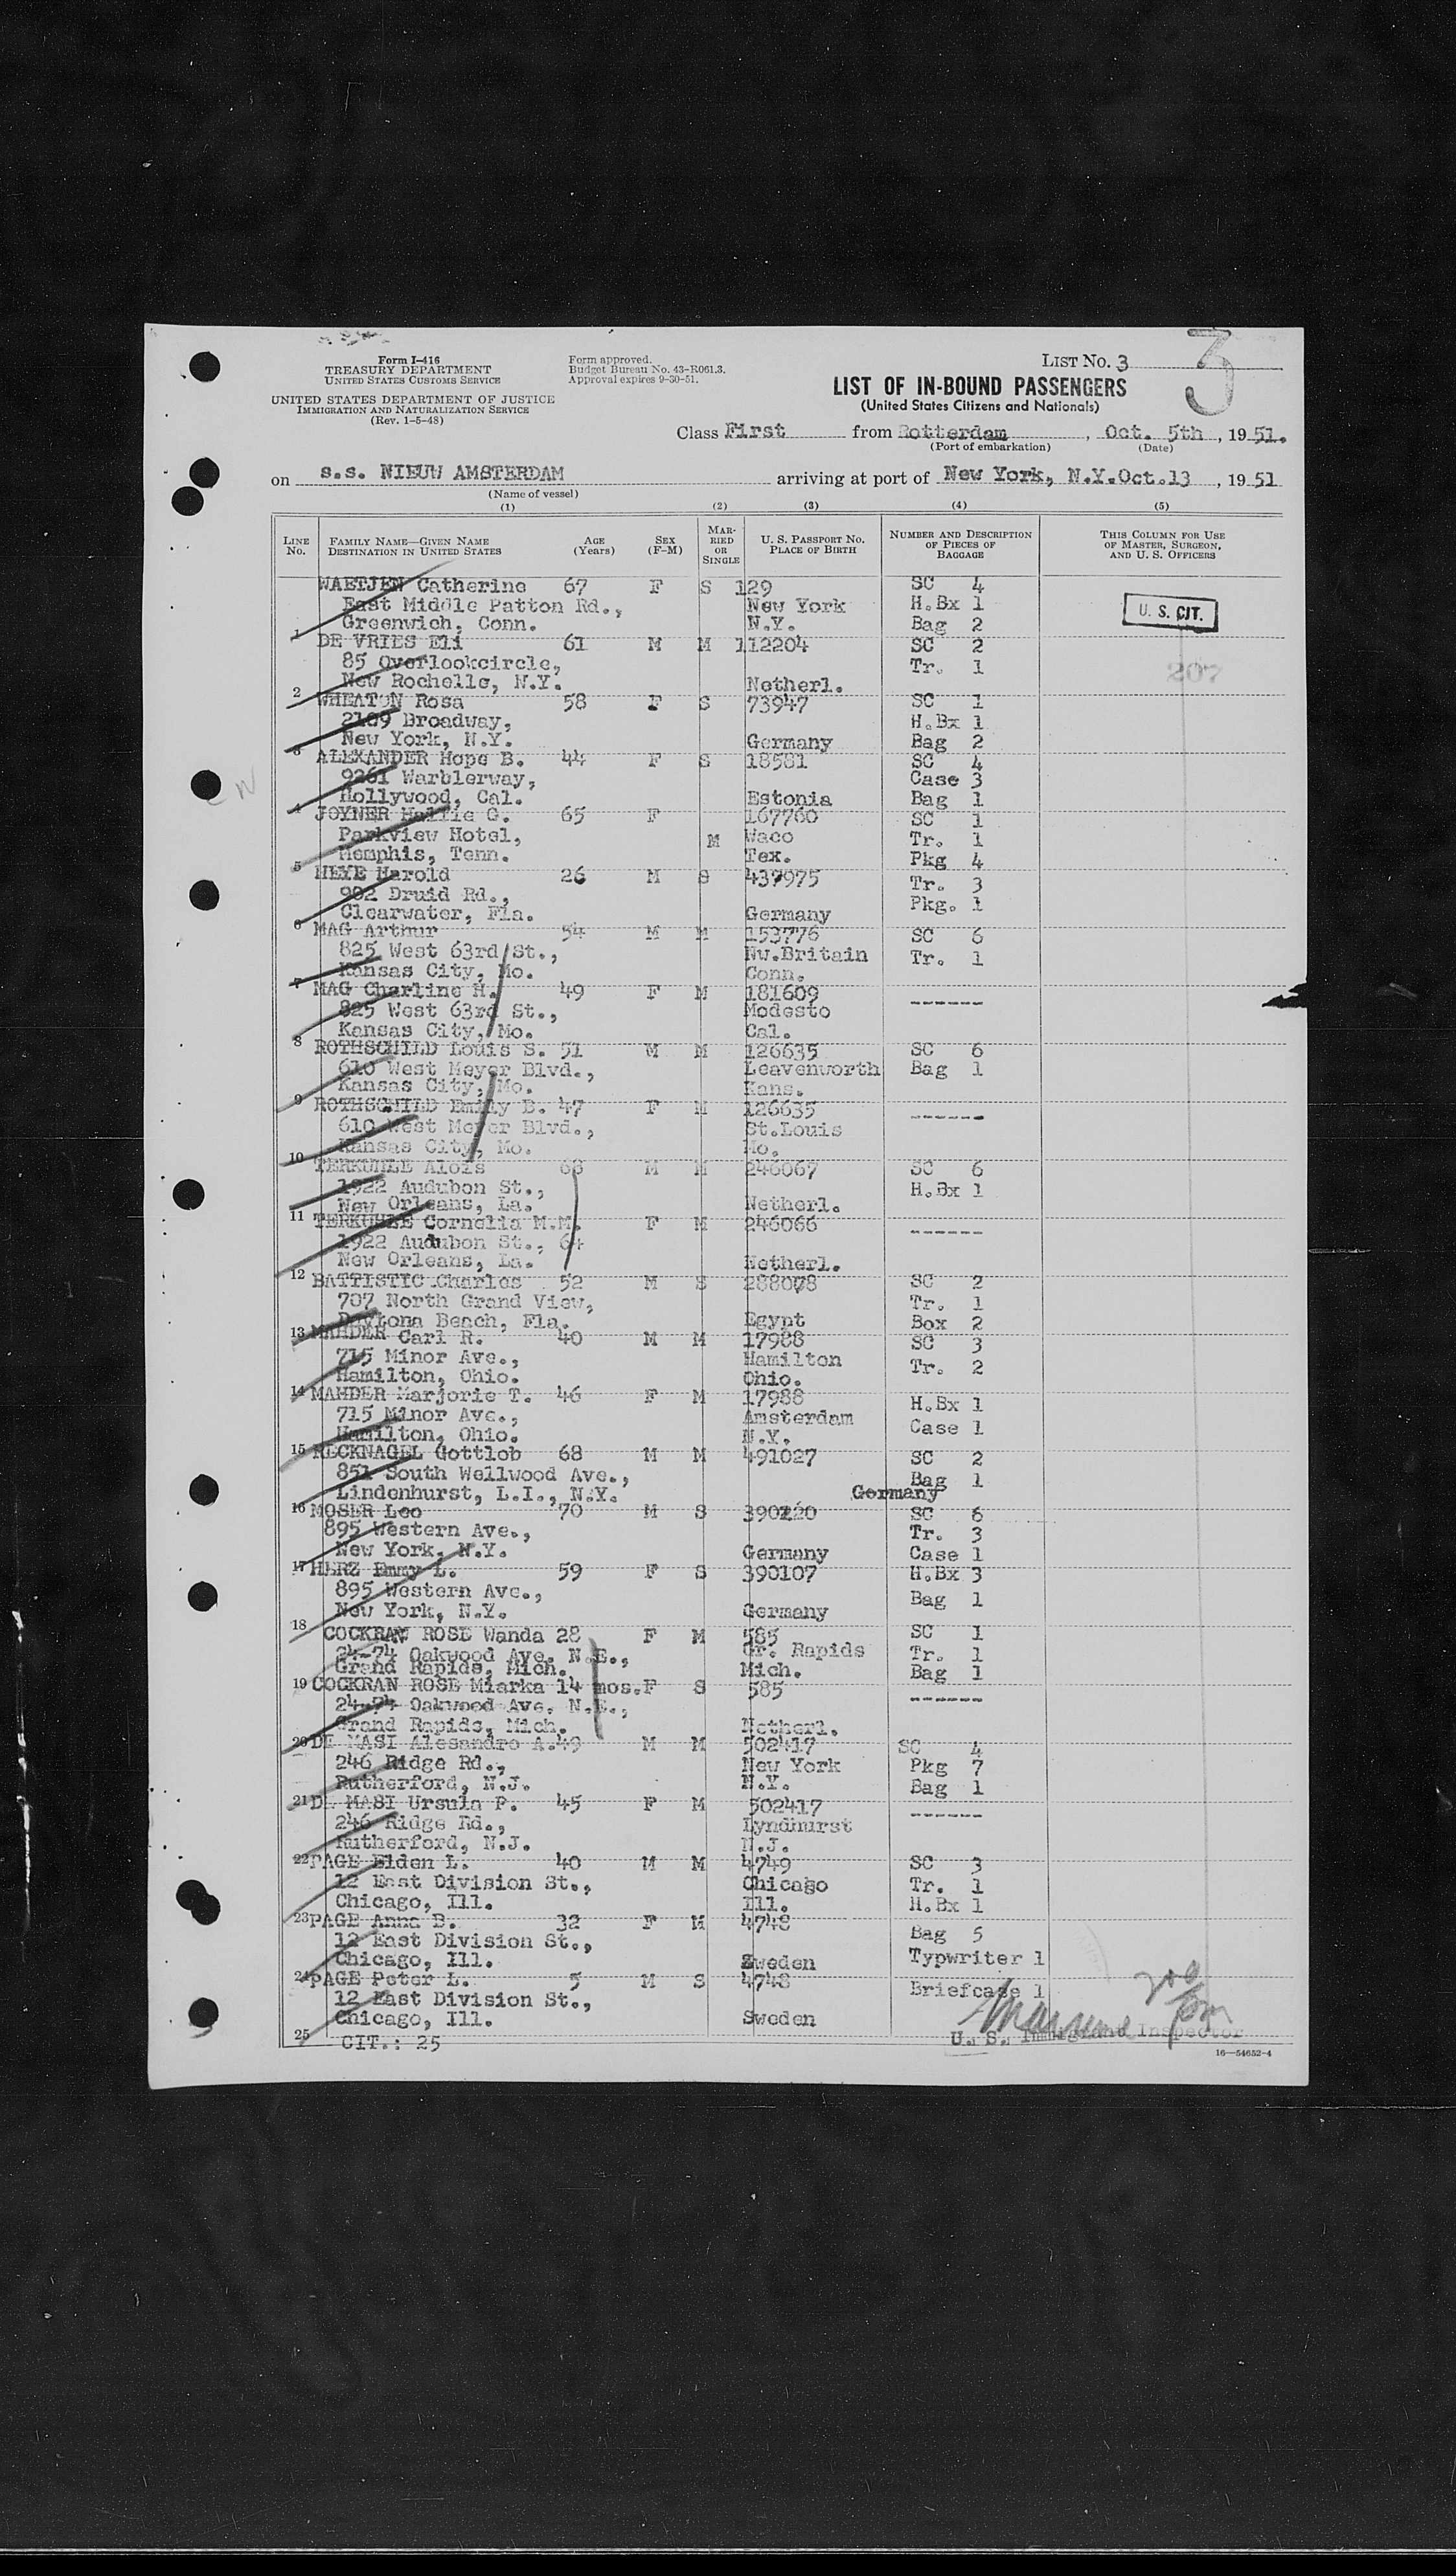 Form I-416
TREASURY DEPARTMENT
UNITED STATES CUSTOMS SERVICE
UNITED STATES DEPARTMENT OF JUSTICE
IMMIGRATION AND NATURALIZATION SERVICE
(Rev. 1-5-48)
Form approved.
Budget Bureau No. 43-R061.3.
Approval expires 9-30-51.
LIST NO. 3
3
LIST OF IN-BOUND PASSENGERS
(United States Citizens and Nationals)
Class First from Rotterdam, Oct. 5th, 1951.
(Port of embarkation) (Date)
on s.s. NIEUW AMSTERDAM arriving at port of New York, N.Y. Oct. 13, 1951
(Name of vessel)
(1) (2) (3) (4) (5)
LINE No. FAMILY NAME—GIVEN NAME DESTINATION IN UNITED STATES AGE (Years) SEX (F-M) MARRIED OR SINGLE U. S. PASSPORT NO. PLACE OF BIRTH NUMBER AND DESCRIPTION OF PIECES OF BAGGAGE THIS COLUMN FOR USE OF MASTER, SURGEON, AND U. S. OFFICERS
WAETJEN Catherine 67 F S 129 SC 4
East Middle Patton Rd., New York H.Bx 1 U. S. CIT.
1 Greenwich, Conn. N.Y. Bag 2
DE VRIES Eli 61 M M 112204 SC 2
85 Overlookcircle, Tr. 1 207
2 New Rochelle, N.Y. Netherl.
WHEATON Rosa 58 F S 73947 SC 1
2189 Broadway, H.Bx 1
3 New York, N.Y. Germany Bag 2
ALEXANDER Hope B. 44 F S 18581 SC 4
9261 Warblerway, Case 3
4 Hollywood, Cal. Estonia Bag 1
JOYNER Hallie G. 65 F 167760 SC 1
Parkview Hotel, M Waco Tr. 1
5 Memphis, Tenn. Tex. Pkg 4
HEYE Harold 26 M S 437975 Tr. 3
902 Druid Rd., Pkg. 1
6 Clearwater, Fla. Germany
MAG Arthur 54 M M 153776 SC 6
825 West 63rd St., Nw.Britain Tr. 1
7 Kansas City, Mo. Conn.
MAG Charline H. 49 F M 181609 ------
825 West 63rd St., Modesto
8 Kansas City, Mo. Cal.
ROTHSCHILD Louis S. 51 M M 126635 SC 6
610 West Meyer Blvd., Leavenworth Bag 1
9 Kansas City, Mo. Kans.
ROTHSCHILD Emily B. 47 F M 126635 ------
610 West Meyer Blvd., St.Louis
10 Kansas City, Mo. Mo.
TERKUHLE Alois M M 246067 SC 6
1922 Audubon St., H.Bx 1
11 New Orleans, La. Netherl.
TERKUHLE Cornelia M.M. F M 246066 ------
1922 Audubon St., 64
12 New Orleans, La. Netherl.
BATTISTIC Charles 52 M S 288078 SC 2
707 North Grand View, Tr. 1
13 Daytona Beach, Fla. Egypt Box 2
MAHDER Carl R. 40 M M 17988 SC 3
715 Minor Ave., Hamilton Tr. 2
14 Hamilton, Ohio. Ohio.
MAHDER Marjorie T. 46 F M 17988 H.Bx 1
715 Minor Ave., Amsterdam Case 1
15 Hamilton, Ohio. N.Y.
RECKNAGEL Gottlob 68 M M 491027 SC 2
851 South Wellwood Ave., Bag 1
16 Lindenhurst, L.I., N.Y. Germany
MOSER Leo 70 M S 390220 SC 6
895 Western Ave., Tr. 3
17 New York, N.Y. Germany Case 1
HERZ Emmy L. 59 F S 390107 H.Bx 3
895 Western Ave., Bag 1
18 New York, N.Y. Germany
COCKRAN ROSE Wanda 28 F M 585 SC 1
24-74 Oakwood Ave. N.E., Gr. Rapids Tr. 1
19 Grand Rapids, Mich. Mich. Bag 1
COCKRAN ROSE Miarka 14 mos. F S 585 ------
24-74 Oakwood Ave. N.E.,
20 Grand Rapids, Mich. Netherl.
DE MASI Alesandro A. 49 M M 502417 SC 4
246 Ridge Rd., New York Pkg 7
21 Rutherford, N.J. N.Y. Bag 1
DE MASI Ursula P. 45 F M 502417 ------
246 Ridge Rd., Lyndhurst
22 Rutherford, N.J. N.J.
PAGE Elden L. 40 M M 4749 SC 3
12 East Division St., Chicago Tr. 1
23 Chicago, Ill. Ill. H.Bx 1
PAGE Anna B. 32 F M 4748 Bag 5
12 East Division St.,
24 Chicago, Ill. Sweden Typwriter 1
PAGE Peter L. 5 M S 4748 Briefcase 1
12 East Division St.,
25 Chicago, Ill. Sweden
CIT.: 25 U. S. Immigrant Inspector
16—54652-4